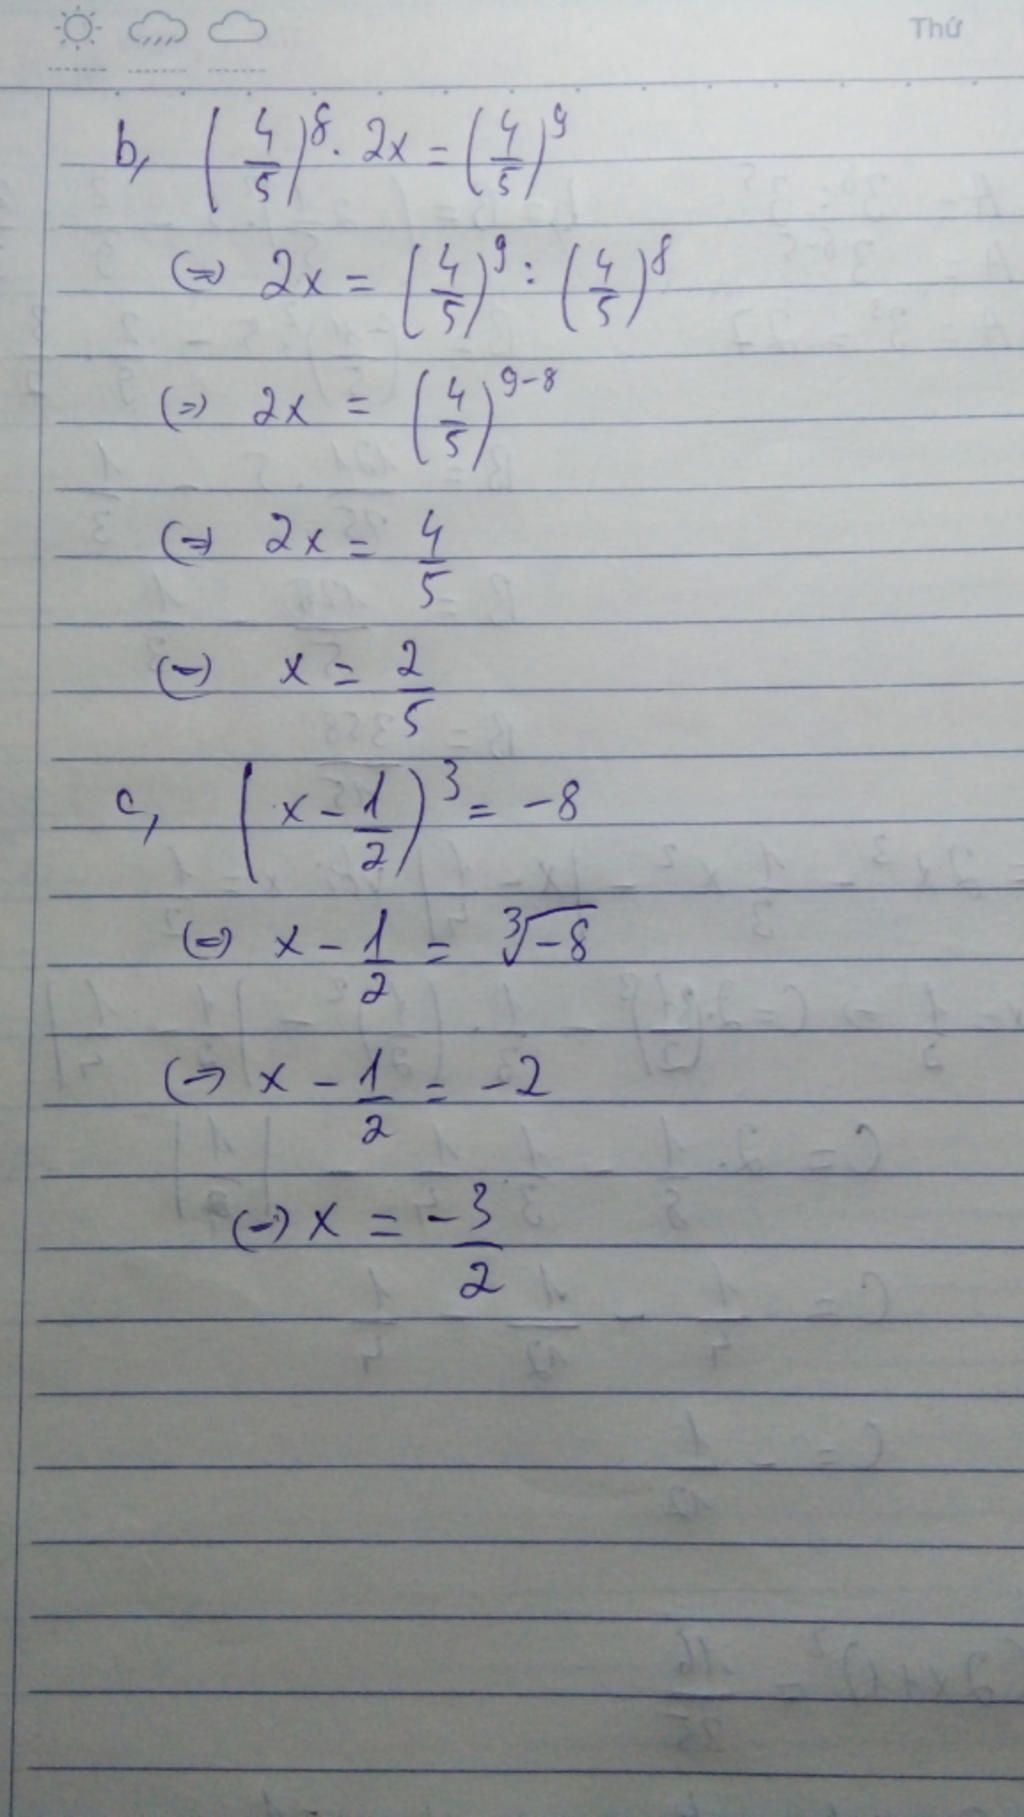 Thứ
b, (4/5)^8 . 2x = (4/5)^9
(=) 2x = (4/5)^9 : (4/5)^8
(=) 2x = (4/5)^9-8
(=) 2x = 4/5
(=) x = 2/5
c, (x - 1/2)^3 = -8
(=) x - 1/2 = ∛-8
(=) x - 1/2 = -2
(=) x = -3/2